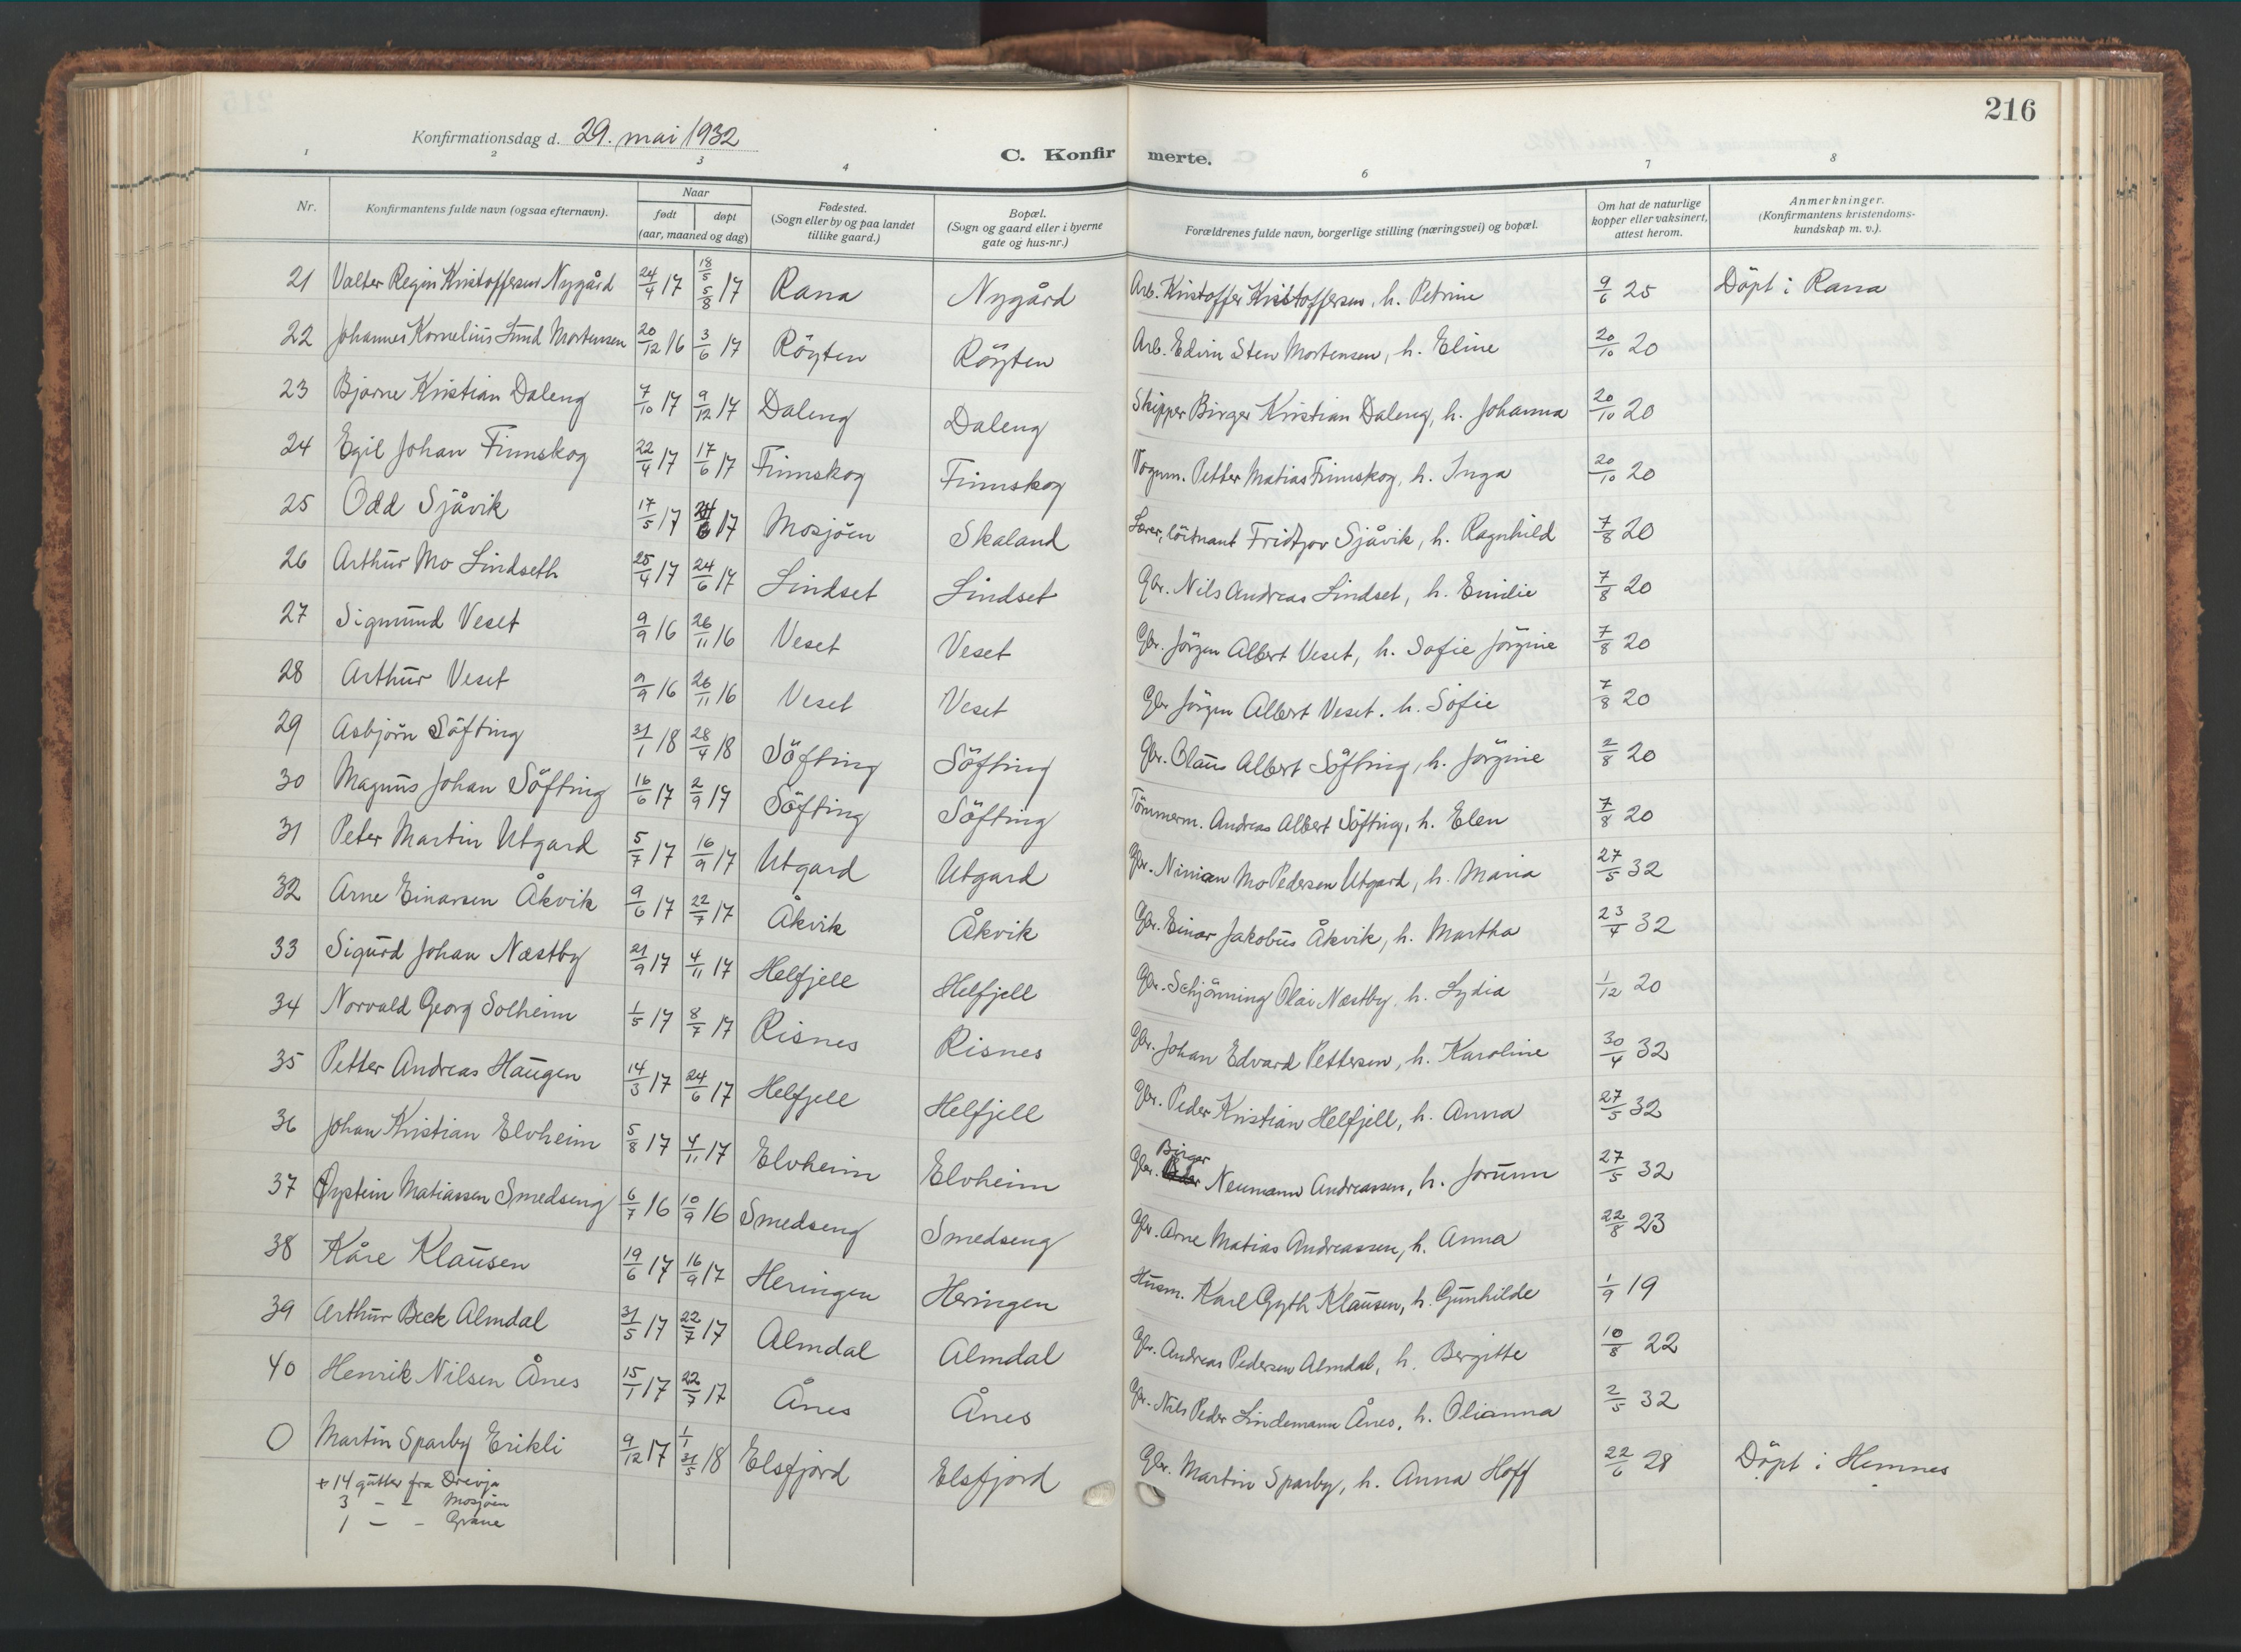 216
Konfirmationsdag d. 29. mai 1932
C. Konfir merte.
1 2 3 4 6 7 8
Nr.
Konfirmantens fulde navn (ogsaa efternavn).
Naar
født døpt
(aar, maaned og dag)
Fødested.
(Sogn eller by og paa landet
tillike gaard.)
Bopæl.
(Sogn og gaard eller i byerne
gate og hus-nr.)
Forældrenes fulde navn, borgerlige stilling (næringsvei) og bopæl.
Om hat de naturlige
kopper eller vaksinert,
attest herom.
Anmerkninger.
(Konfirmantens kristendoms-
kundskap m. v.).
21 Valter Regin Kristoffersen Nygård 24/4 17 18/5 5/8 17 Rana Nygård Arb. Kristoffer Kristoffersen, h. Petrine 9/6 25 Döpt i Rana
22 Johannes Kornelius Lund Mortensen 20/12 16 3/6 17 Röyten Röyten Arb. Edvin Sten Mortensen, h. Eline 20/10 20
23 Bjarne Kristian Daleng 7/10 17 9/12 17 Daleng Daleng Skipper Birger Kristian Daleng, h. Johanna 20/10 20
24 Egil Johan Finnskog 22/4 17 17/6 17 Finnskog Finnskog Vognm. Petter Matias Finnskog, h. Inga 20/10 20
25 Odd Sjåvik 17/5 17 24/6 17 Mosjöen Skaland Lærer, löitnant Fridtjov Sjåvik, h. Ragnhild 7/8 20
26 Arthur Mo Lindseth 25/4 17 24/6 17 Lindset Lindset Gbr. Nils Andreas Lindset, h. Emilie 7/8 20
27 Sigmund Veset 9/9 16 26/11 16 Veset Veset Gbr. Jörgen Albert Veset, h. Sofie Jörgine 7/8 20
28 Arthur Veset 9/9 16 26/11 16 Veset Veset Gbr Jörgen Albert Veset. h. Sofie 7/8 20
29 Asbjörn Söfting 31/1 18 28/4 18 Söfting Söfting Gbr. Olaus Albert Söfting, h. Jörgine 2/8 20
30 Magnus Johan Söfting 16/6 17 2/9 17 Söfting Söfting Tömmerm. Andreas Albert Söfting, h. Elen 7/8 20
31 Peter Martin Utgard 5/7 17 16/9 17 Utgard Utgard Gbr. Ninian Mo Pedersen Utgard, h. Maria 27/5 32
32 Arne Einarsen Åkvik 9/6 17 22/7 17 Åkvik Åkvik Gbr. Einar Jakobus Åkvik, h. Martha 23/4 32
33 Sigurd Johan Næstby 21/9 17 4/11 17 Helfjell Helfjell Gbr. Schjönning Olai Næstby, h. Lydia 1/12 20
34 Norvald Georg Solheim 1/5 17 8/7 17 Risnes Risnes Gbr. Johan Edvard Pettersen, h. Karoline 30/4 32
35 Petter Andreas Haugen 14/3 17 24/6 17 Helfjell Helfjell Gbr. Peder Kristian Helfjell, h. Anna 27/5 32
36 Johan Kristian Elvheim 5/8 17 4/11 17 Elvheim Elvheim Gbr. Birger Neumann Andreassen, h. Jorunn 27/5 32
37 Øystein Matiassen Smedseng 6/7 16 10/9 16 Smedseng Smedseng Gbr. Arne Matias Andreassen, h. Anna 22/8 23
38 Kåre Klausen 19/6 17 16/9 17 Heringen Heringen Husm. Karl Gyth Klausen, h. Gunhilde 1/9 19
39 Arthur Beck Almdal 31/5 17 22/7 17 Almdal Almdal Gbr. Andreas Pedersen Almdal, h. Bergitte 10/8 22
40 Henrik Nilsen Ånes 15/1 17 22/7 17 Ånes Ånes Gbr. Nils Peder Lindemann Ånes, h. Olianna 2/5 32
O Martin Sparby Erikli 9/12 17 1/1 31/5 18 Elsfjord Elsfjord Gbr. Martin Sparby, h. Anna Hoff 22/6 28 Döpt i Hemnes
+ 14 gutter fra Drevja
3 — - Mosjöen
1 — - Grane